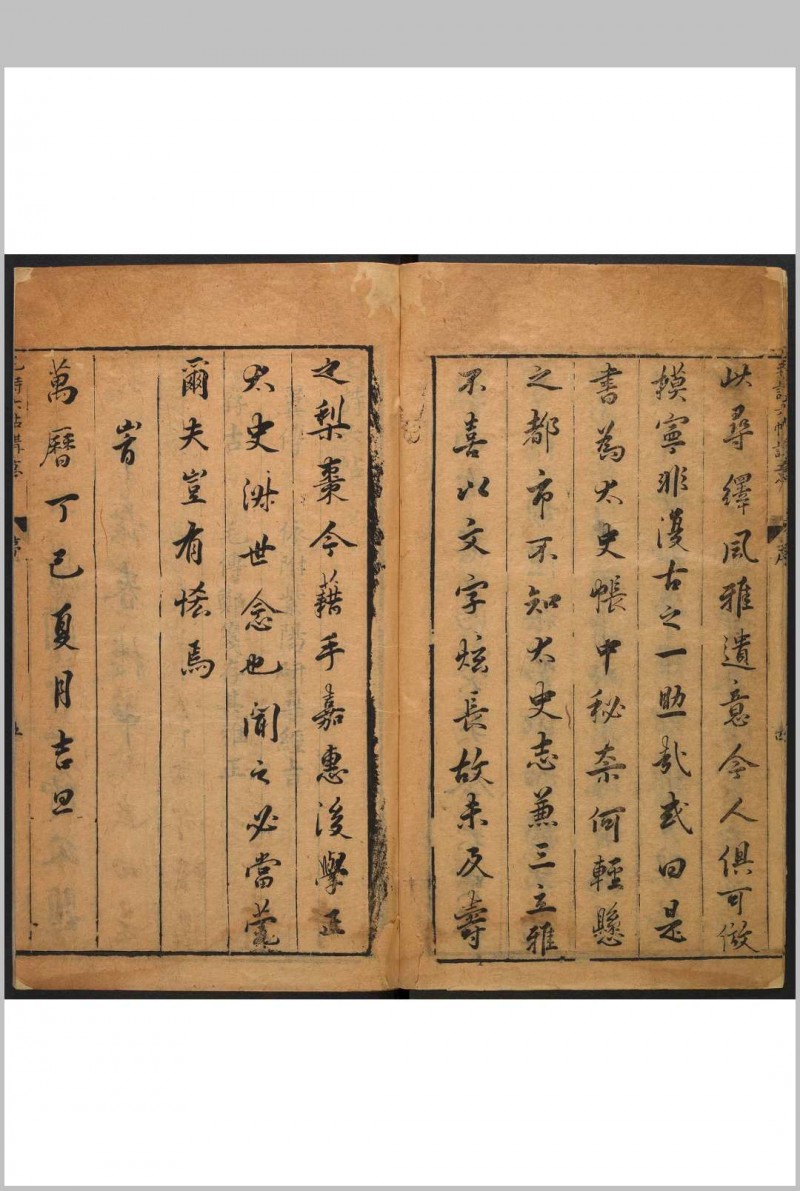 此尋繹風雅遺意令人俱可倣
模寧非漢古之一助哉或曰是
書為太史帳中秘奈何輕懸
之都市不知太史志兼三立雅
不喜以文字炫長故未及壽
之梨棗今藉手嘉惠後學正
太史濟世念也聞之必當莞
爾夫豈有悋焉
旹
萬曆丁巳夏月吉旦